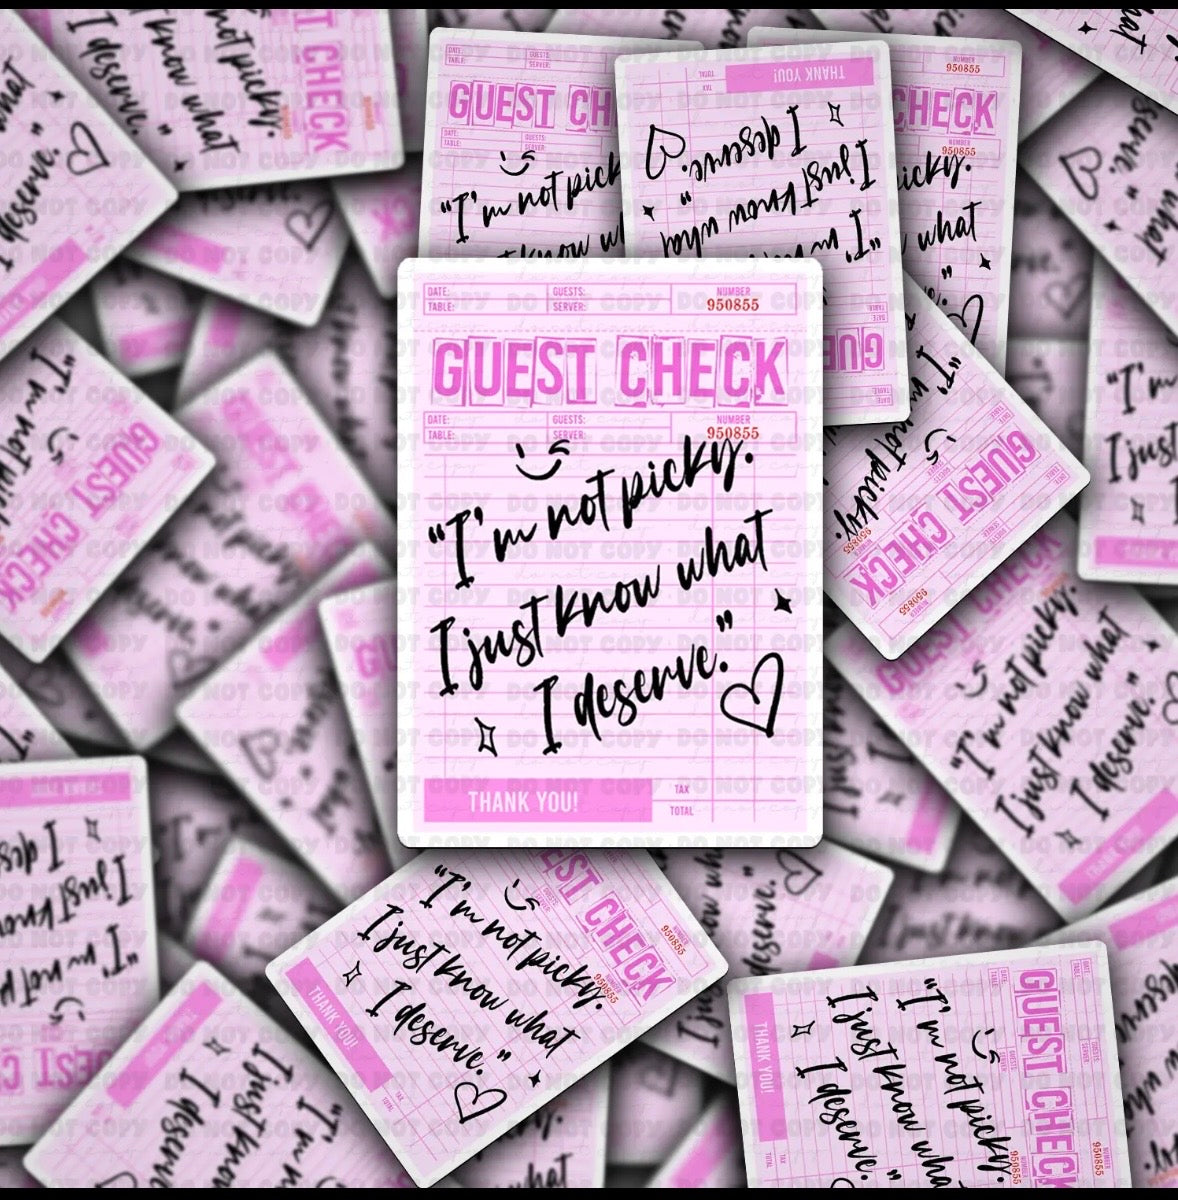 DATE: GUESTS: NUMBER
TABLE: SERVER: 950855
GUEST CHECK
DATE: GUESTS: NUMBER
TABLE: SERVER: 950855
"I'm not picky.
I just know what
I deserve."
THANK YOU! TAX
TOTAL
DO NOT COPY